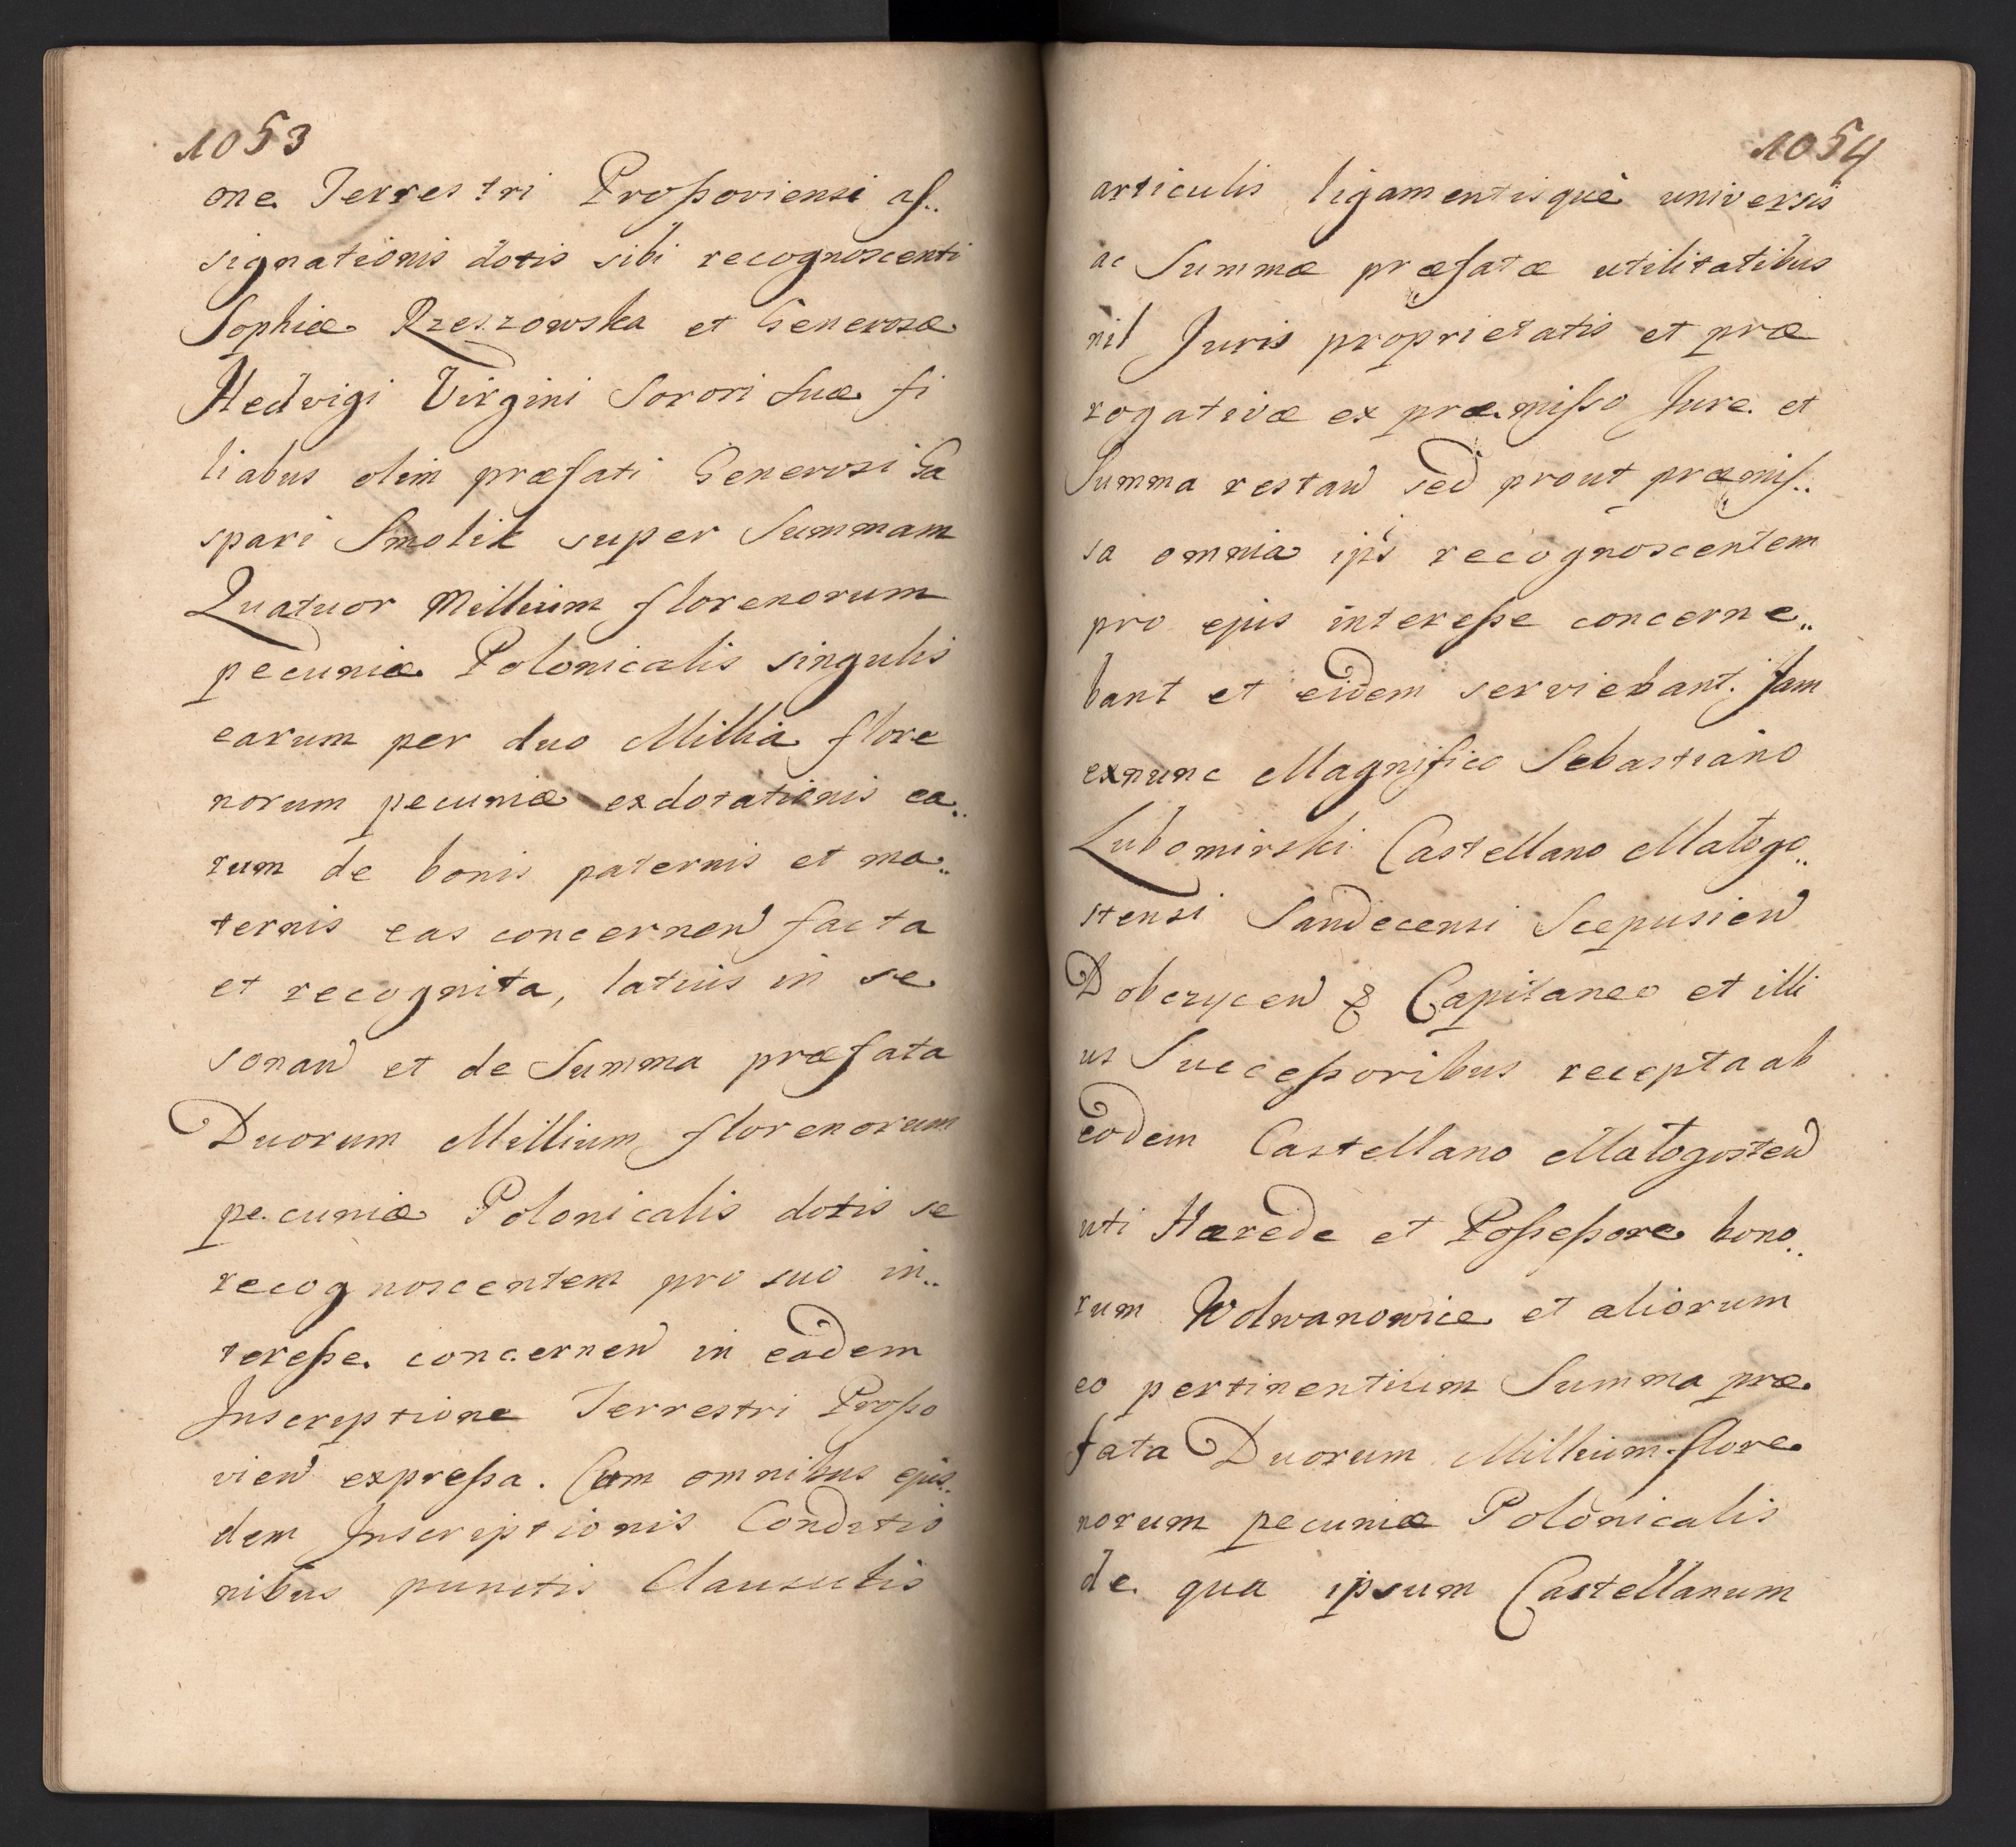 1053
one Terrestri Proßoviensi aſ..
signationis dotis sibi recognoscenti
Sophiæ Rzeszowska et Generosæ
Hedvigi Virgini Sorori suæ fi
liabus olim præfati Generosi Ga
spari Smolik super Summam
Quatuor Millium florenorum
pecuniæ Polonicalis singulis
earum per duo Millia flore
norum pecuniæ exdotationis ea..
rum de bonis paternis et ma..
ternis eas concernen facta
et recognita, latius in se
sonan et de Summa præfata
Duorum Millium florenorum
pecuniæ Polonicalis dotis se
recognoscentem pro suo in..
tereße concernen in eadem
Inscriptione Terrestri Proßo
vien expreßa. Cum omnibus ejus..
dem Inscriptionis Conditio
nibus punctis Clausulis
1054
articulis ligamentisquè universis
ac Summæ præfatæ utilitatibus
nil Juris proprietatis et præ
rogativæ ex præmißo Jure et
Summa restan sed prout præmiſ..
sa omnia ips recognoscentem
pro ejus intereße concerne..
bant et eidem serviebant. Jam
exnunc Magnifico Sebastiano
Lubomirski Castellano Małogo..
stensi Sandecensi Scepusien
Dobczycen & Capitaneo et illi
us Succeßoribus recepta ab
eodem Castellano Małogosten
uti Hærede et Poßeßore bono..
rum Wolwanowice et aliorum
eo pertinentium Summa præ
fata Duorum Millium flore
norum pecuniæ Polonicalis
de qua ipsum Castellanum